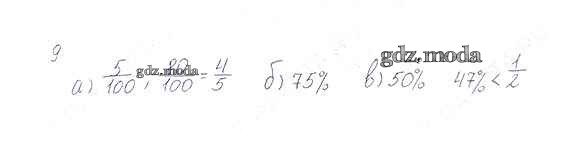 9
gdz.moda
а) 5/100 ; 80/100 = 4/5 б) 75% в) 50% 47% < 1/2
gdz.moda